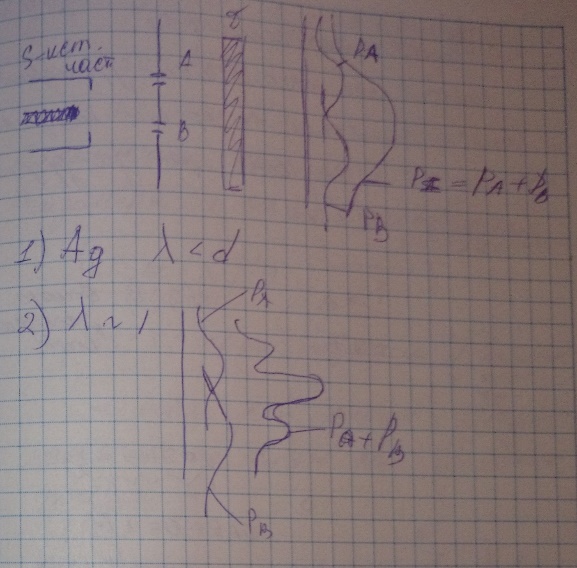 S-ист.
част
A
B
τ
P_A
P_Σ = P_A + P_B
P_B
1) Ag λ < d
2) λ ~ 1
P_A
P_A + P_B
P_B